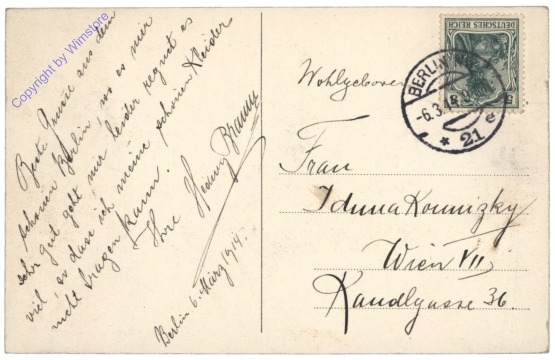 Beste Grüsse aus dem
schönen Berlin wo es mir
sehr gut geht nur leider regnet es
viel so dass ich meine schönen Kleider
nicht tragen kann.
Ihre Hedwig
Berlin 6. März 1914.
Copyright by Winstore
DEUTSCHES REICH
BERLIN
-6.3.
* 21 e
Wohlgeboren
Frau
Wien VII
Kandlgasse 36.